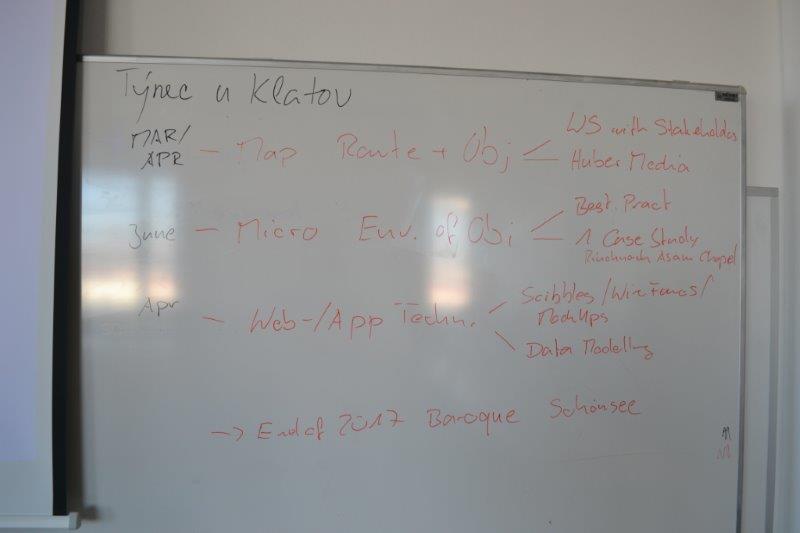 Týnec u Klatov
MAR/
APR
- Map Route + Obj
WS with Stakeholdes
Huber Media
June - Micro Env. of Obj
Best. Pract
1 Case Study
Rinchnach Asam Chapel
Apr - Web-/App Techn.
Scibbles/WireFames/
MockUps
Data Modelling
→ End of 2017 Baroque Schönsee